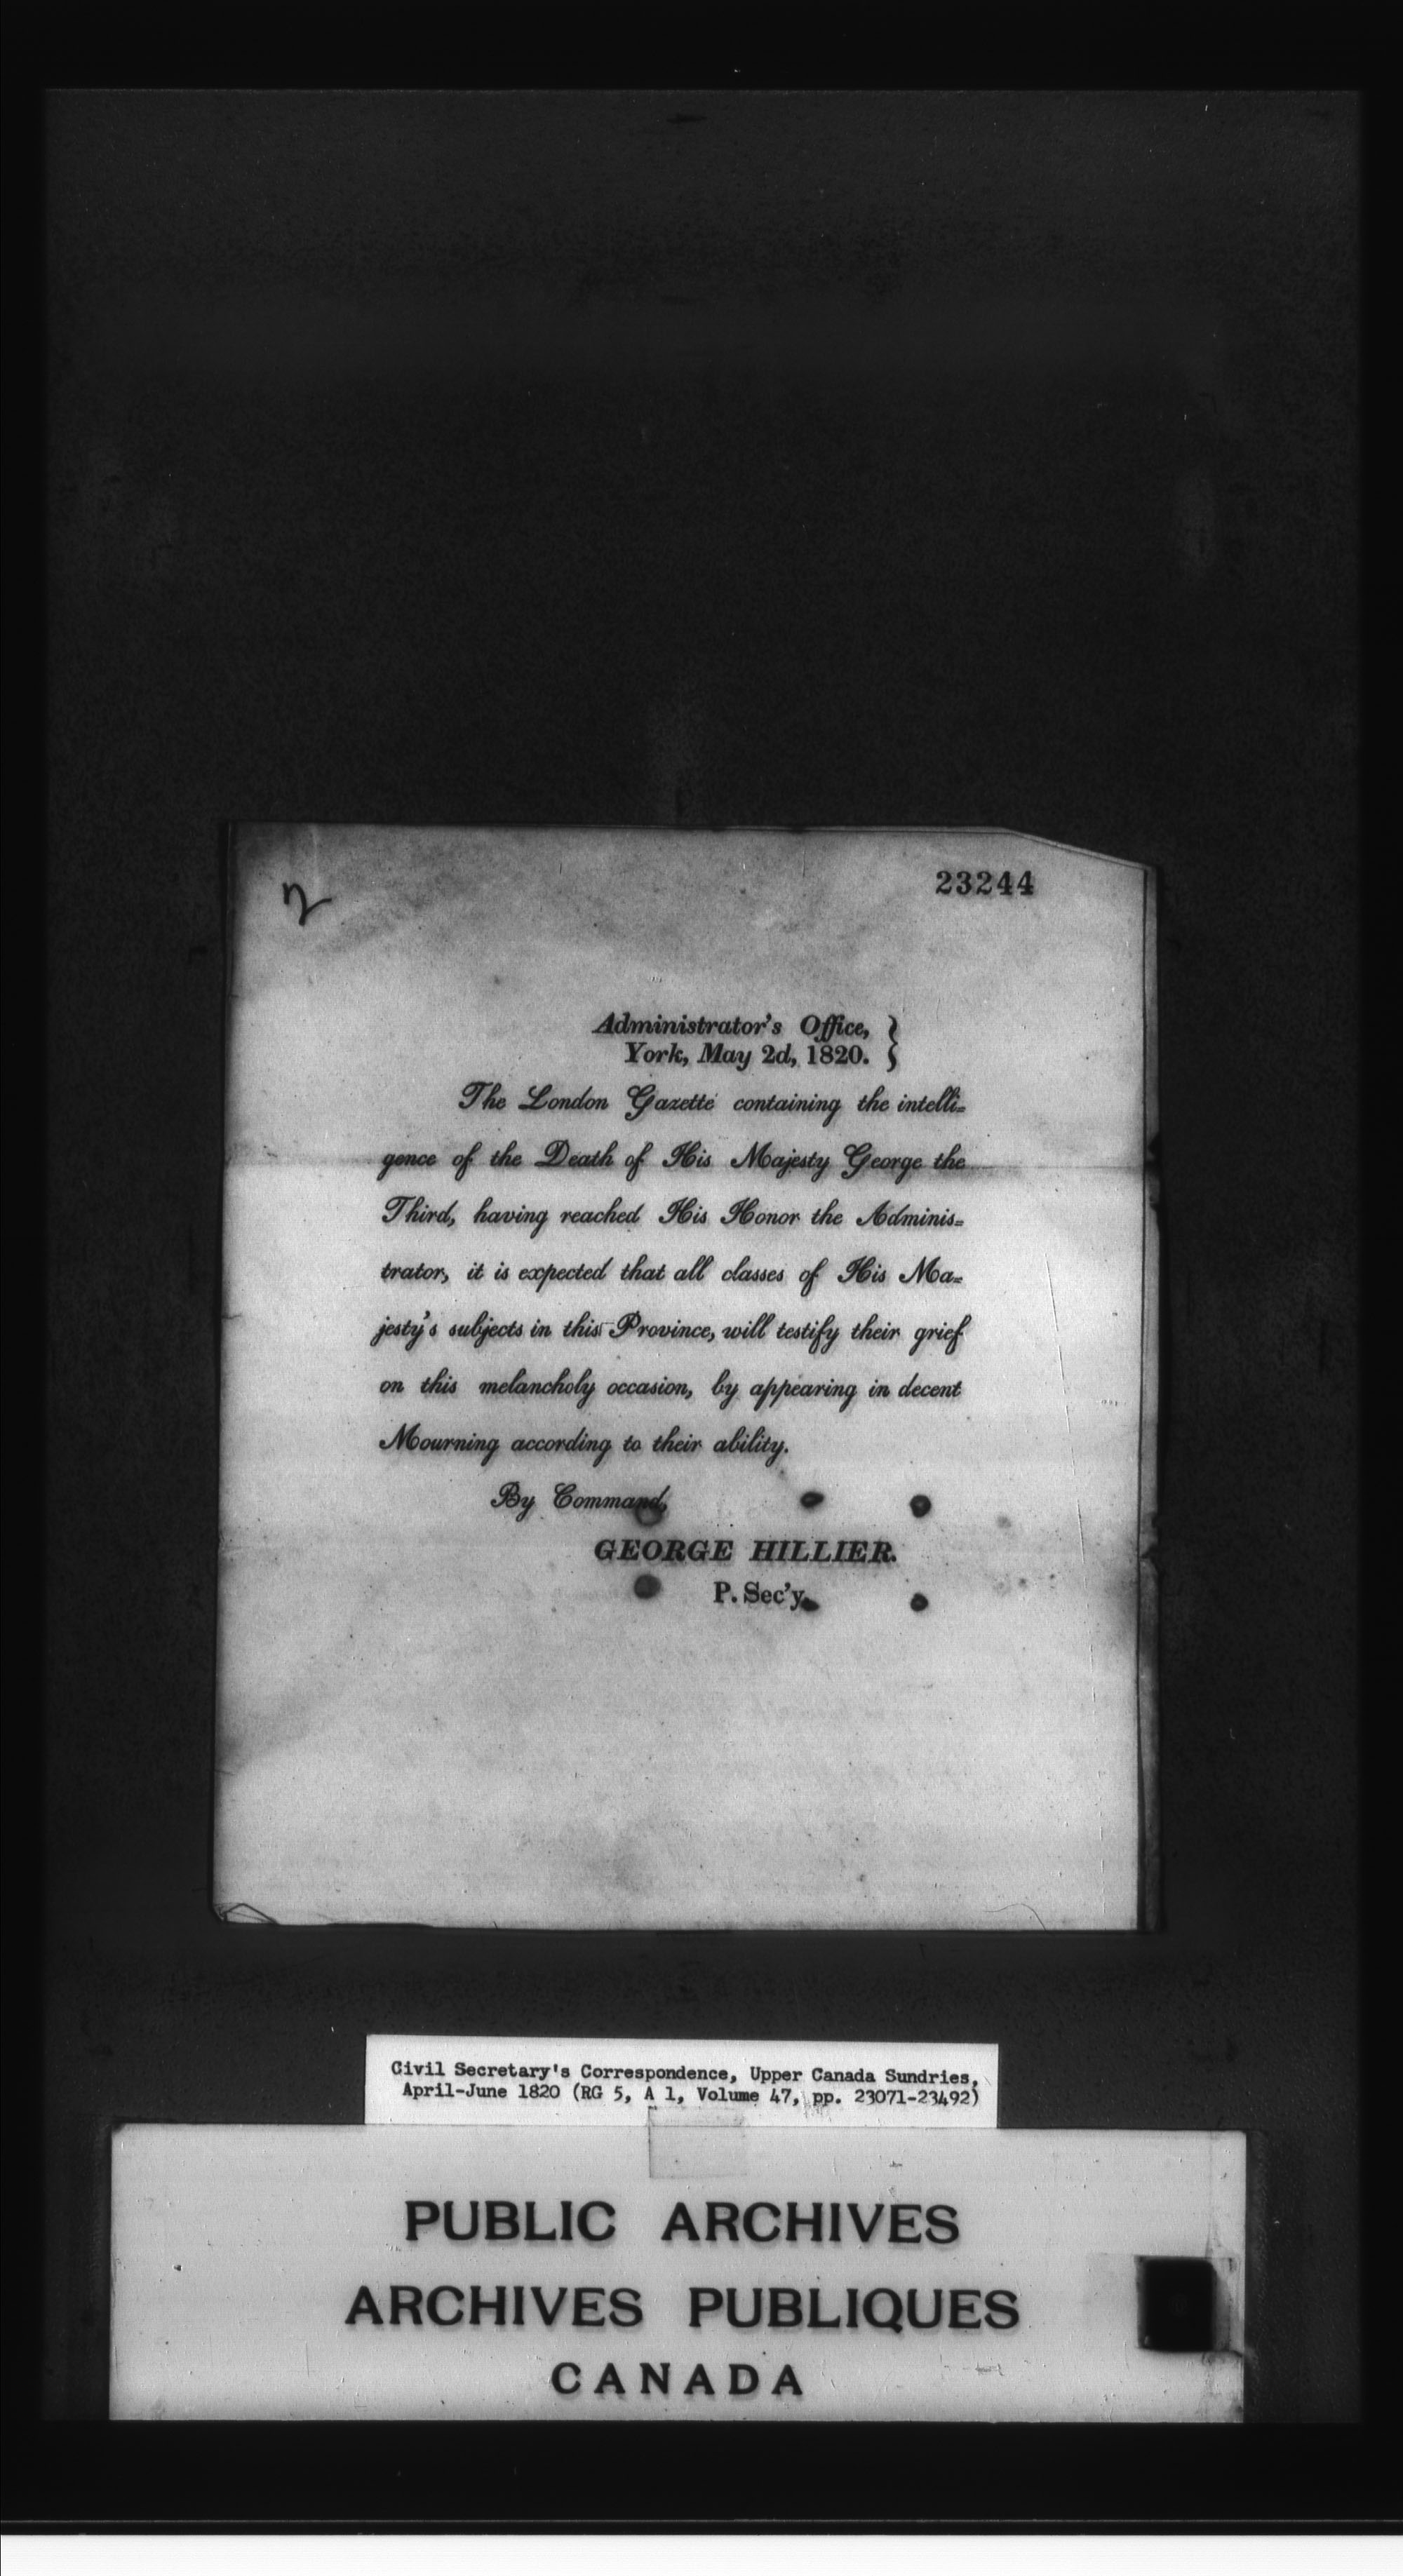 2
23244
Administrator's Office, }
York, May 2d, 1820.
The London Gazette containing the intelli=
gence of the Death of His Majesty George the
Third, having reached His Honor the Adminis=
trator, it is expected that all classes of His Ma=
jesty's subjects in this Province, will testify their grief
on this melancholy occasion, by appearing in decent
Mourning according to their ability.
By Command,
GEORGE HILLIER.
P. Sec'y.
Civil Secretary's Correspondence, Upper Canada Sundries,
April-June 1820 (RG 5, A 1, Volume 47, pp. 23071-23492)
PUBLIC ARCHIVES
ARCHIVES PUBLIQUES
CANADA